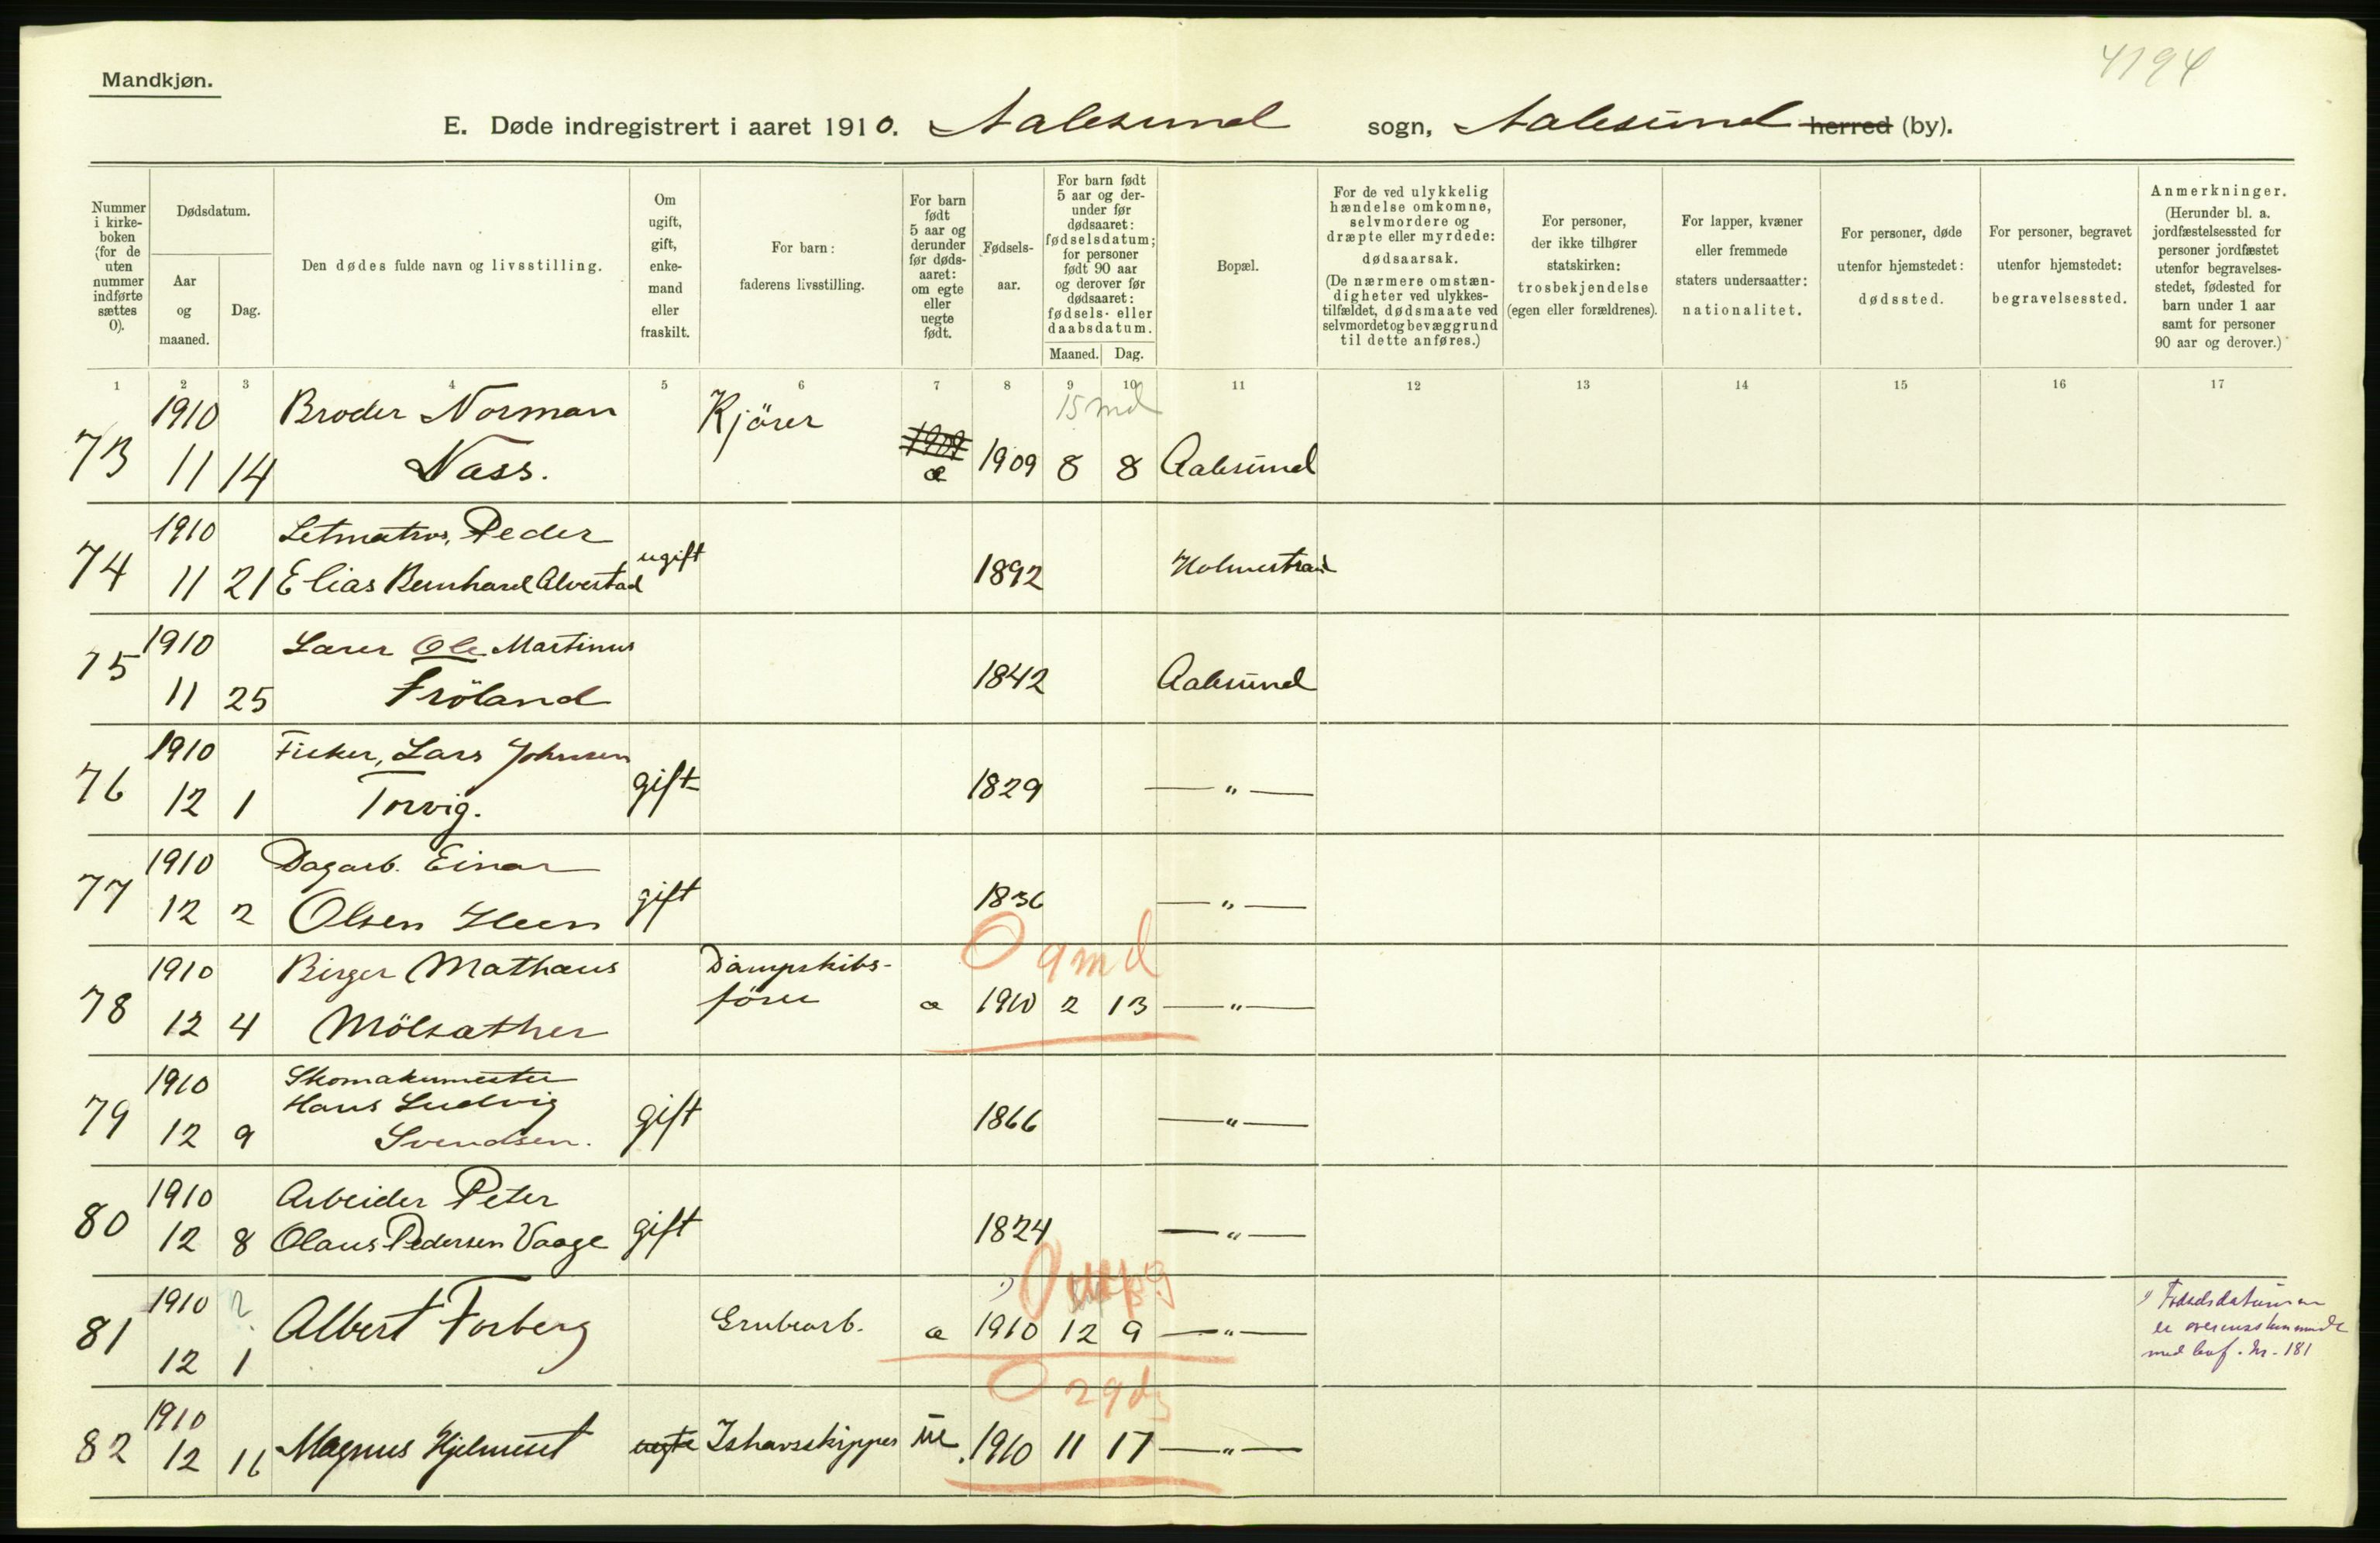 4194
Mandkjøn.
E. Døde indregistrert i aaret 1910. Aalesund sogn, Aalesund herred (by).
Nummer i kirke-boken (for de uten nummer indførte sættes 0).
Dødsdatum.
Aar og maaned.
Dag.
Den dødes fulde navn og livsstilling.
Om ugift, gift, enke-mand eller fraskilt.
For barn: faderens livsstilling.
For barn født 5 aar og derunder før døds-aaret: om egte eller uegte født.
Fødsels-aar.
For barn født 5 aar og der-under før dødsaaret: fødselsdatum; for personer født 90 aar og derover før dødsaaret: fødsels- eller daabsdatum.
Maaned. Dag.
Bopæl.
For de ved ulykkelig hændelse omkomne, selvmordere og dræpte eller myrdede: dødsaarsak. (De nærmere omstæn-digheter ved ulykkes-tilfældet, dødsmaate ved selvmordet og bevæggrund til dette anføres.)
For personer, der ikke tilhører statskirken: trosbekjendelse (egen eller forældrenes).
For lapper, kvæner eller fremmede staters undersaatter: nationalitet.
For personer, døde utenfor hjemstedet: dødssted.
For personer, begravet utenfor hjemstedet: begravelsessted.
Anmerkninger. (Herunder bl. a. jordfæstelsessted for personer jordfæstet utenfor begravelses-stedet, fødested for barn under 1 aar samt for personer 90 aar og derover.)
1 2 3 4 5 6 7 8 9 10 11 12 13 14 15 16 17
1910 Broder Norman Kjörer 1909 15 md
73 11 14 Nass. æ 1909 8 8 Aalesund
1910 Letmatros, Peder
74 11 21 Elias Bernhard Alvestad ugift 1892 Holmestrand
1910 Ole Martinus
75 11 25 Fröland 1842 Aalesund
1910 Fisker, Lars Johnsen
76 12 1 Torvig. gift 1829 — " —
1910 Dagarb. Einar
77 12 2 Olsen Heen gift 1836 — " —
0 9 md
1910 Birger Mathæus Dampskibs-
78 12 4 Mölsæther förer æ 1910 2 13 — " —
1910 Skomakermester
Hans Ludvig
79 12 9 Svendsen. gift 1866 — " —
1910 Arbeider Peter
80 12 8 Olaus Pedersen Vaage gift 1824 — " —
1910 ? 1) 0
81 12 1 Albert Forberg Grubearb. æ 1910 12 9 — " —
1) Födselsdatumen
er overensstemmende
med Nr. 181
0 29 dg
1910
82 12 16 Magnus Hjelmeset uegte Ishavsskipper ue. 1910 11 17 — " —